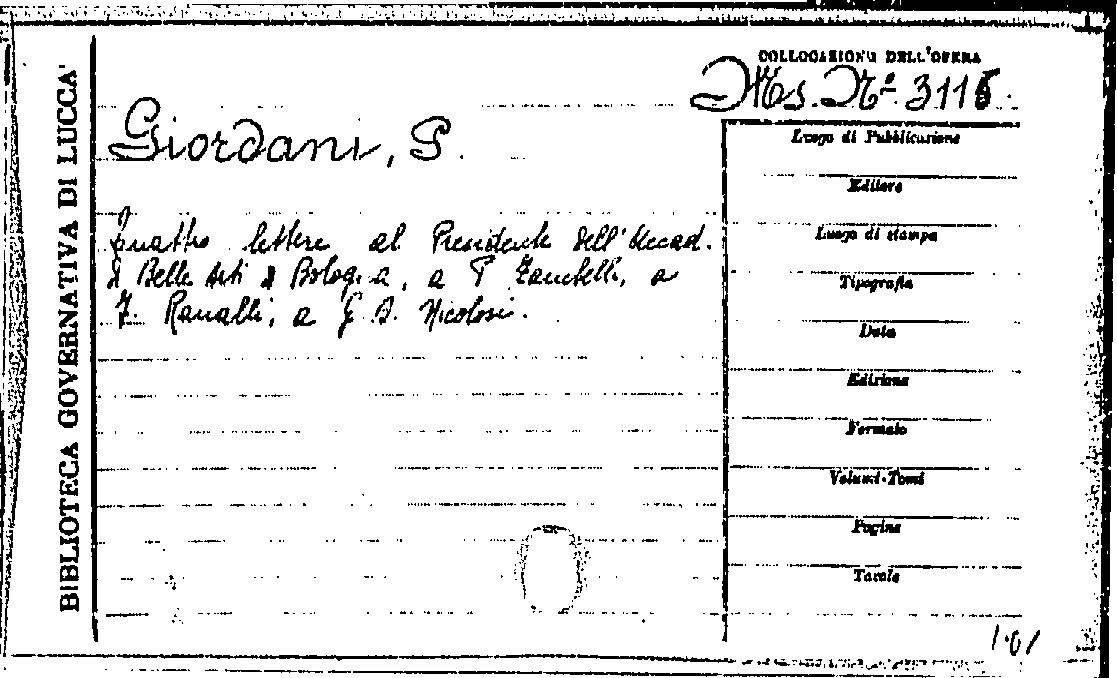 BIBLIOTECA GOVERNATIVA DI LUCCA
COLLOCAZIONE DELL'OPERA
Ms. Nº 3116
Giordani, P.
Quattro lettere al Presidente dell'Accad.
di Belle Arti di Bologna, a P. Zambelli, a
F. Ranalli, a G. B. Nicolosi.
Luogo di Pubblicazione
Editore
Luogo di stampa
Tipografia
Data
Edizione
Formato
Volumi-Tomi
Pagine
Tavole